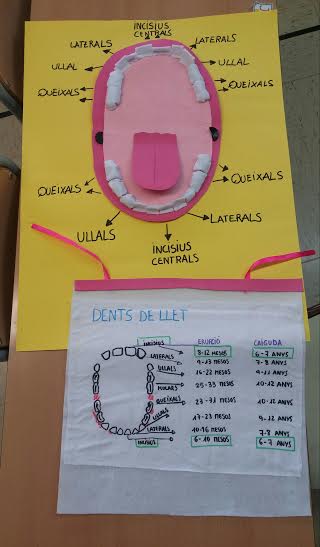 INCISIUS
CENTRALS
LATERALS LATERALS
ULLAL ULLAL
QUEIXALS QUEIXALS
QUEIXALS QUEIXALS
ULLALS LATERALS
INCISIUS
CENTRALS
DENTS DE LLET
INCISIUS ERUPCIÓ CAIGUDA
8-12 MESOS 6-7 ANYS
LATERALS 9-13 MESOS 7-8 ANYS
ULLALS 16-22 MESOS 9-11 ANYS
MOLARS 25-33 MESOS 10-12 ANYS
QUEIXALS 23-31 MESOS 10-12 ANYS
ULLALS 17-23 MESOS 9-12 ANYS
LATERALS 10-16 MESOS 7-8 ANYS
INCISIUS 6-10 MESOS 6-7 ANYS